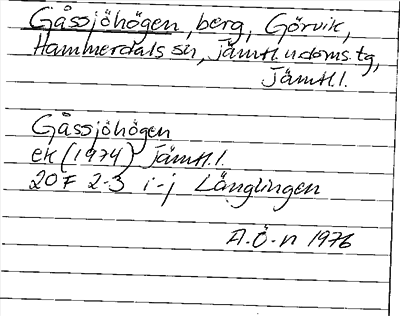 Gåssjöhögen, berg, Görvik,
Hammerdals sn, Jämtl. n doms. tg,
Jämtl. l.
Gåssjöhögen
ek (1974) Jämtl. l.
20 F 2-3 i-j Långlingen
A.Ö-n 1976